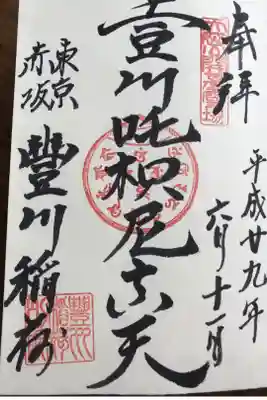 奉拝
平成廿九年
六月十一日
豊川吒枳尼真天
東京
赤坂
豐川稲荷